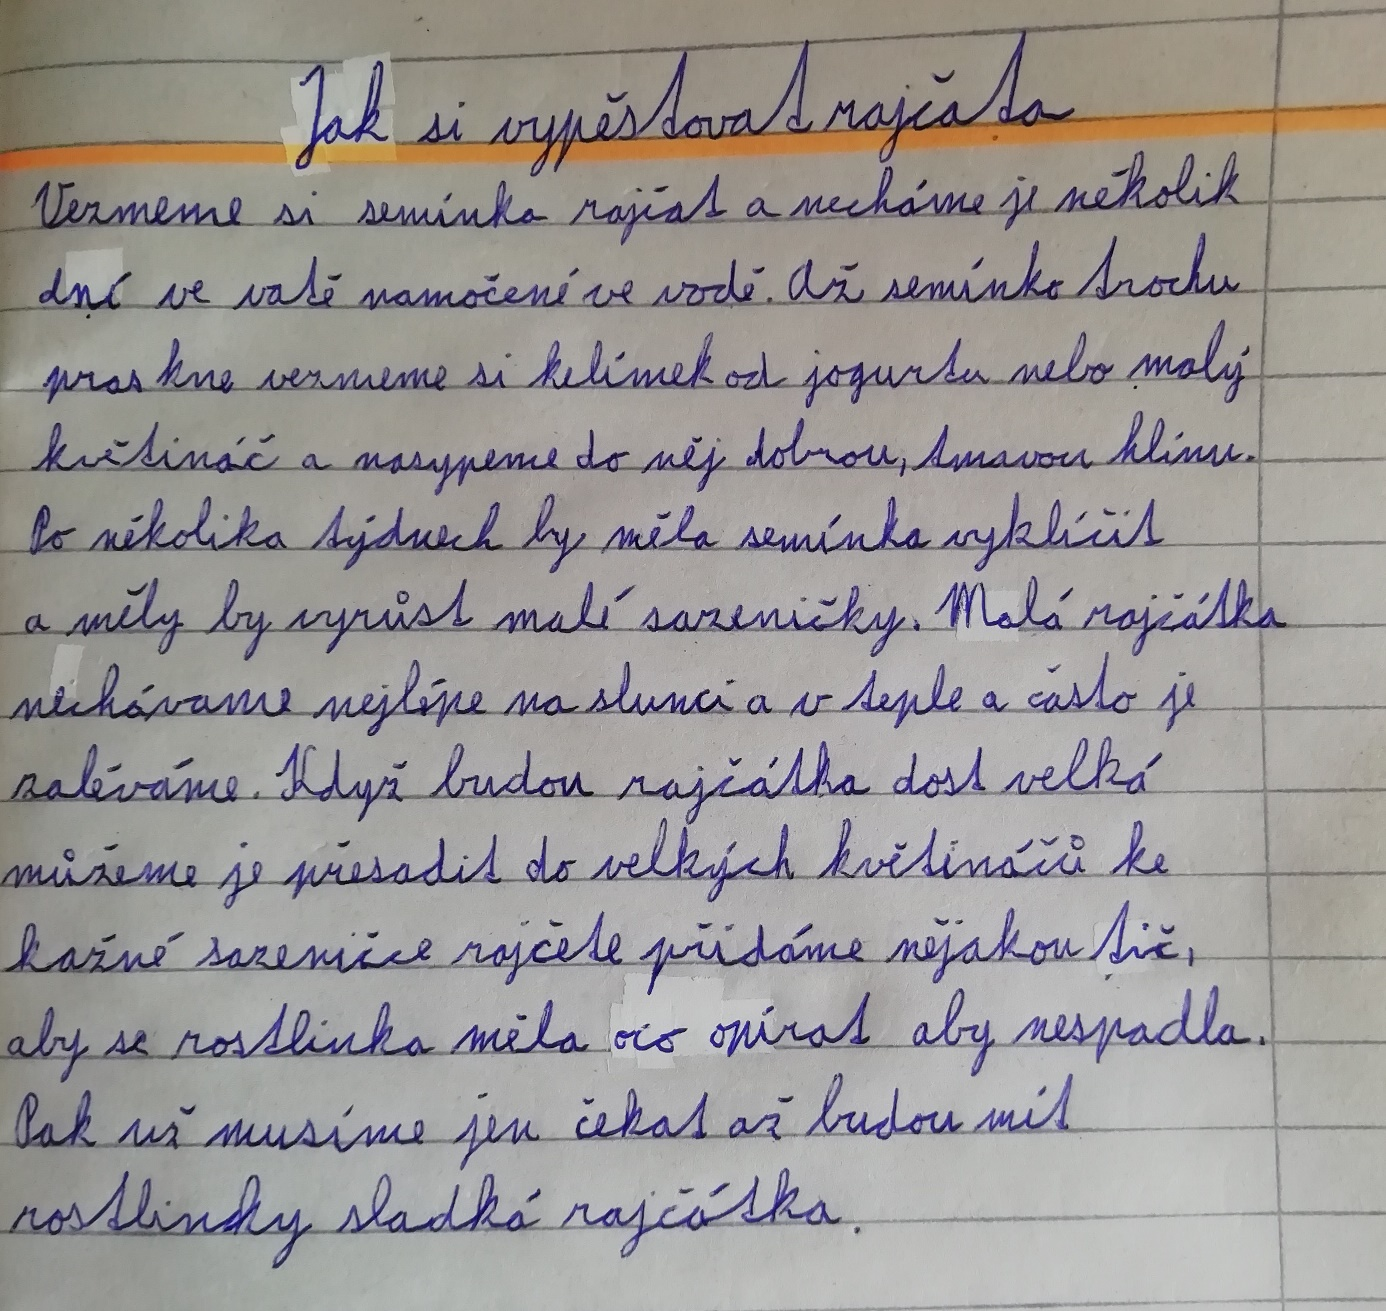 Jak si vypěstovat rajčata
Vezmeme si semínka rajčat a necháme je několik
dní ve vatě namočené ve vodě. Až semínko trochu
praskne vezmeme si kelímek od jogurtu nebo malý
květináč a nasypeme do něj dobrou, tmavou hlínu.
Po několika týdnech by měla semínka vyklíčit
a měly by vyrůst malé sazeničky. Malá rajčátka
nechávame nejlépe na slunci a v teple a často je
zaléváme. Když budou rajčátka dost velká
můžeme je přesadit do velkých květináčů ke
kažné sazeničce rajčete přidáme nějakou tič,
aby se rostlinka měla oco opírat aby nespadla.
Pak už musíme jen čekat až budou mít
rostlinky sladká rajčátka.